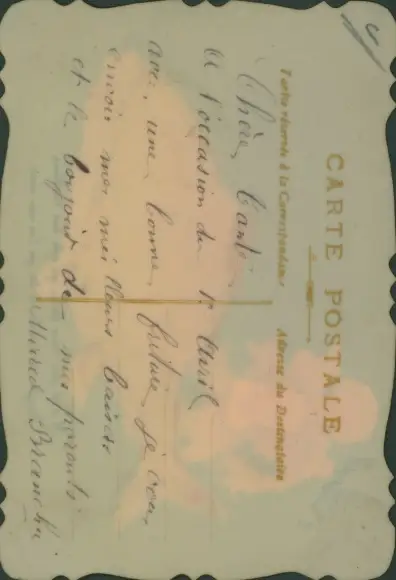 CARTE POSTALE
Partie réservée à la Correspondance
Adresse du Destinataire
Chère Tante
A l'occasion du 1er Avril
avec une bonne friture je vous
envoie mes meilleurs baisers
et le bonjour de mes parents